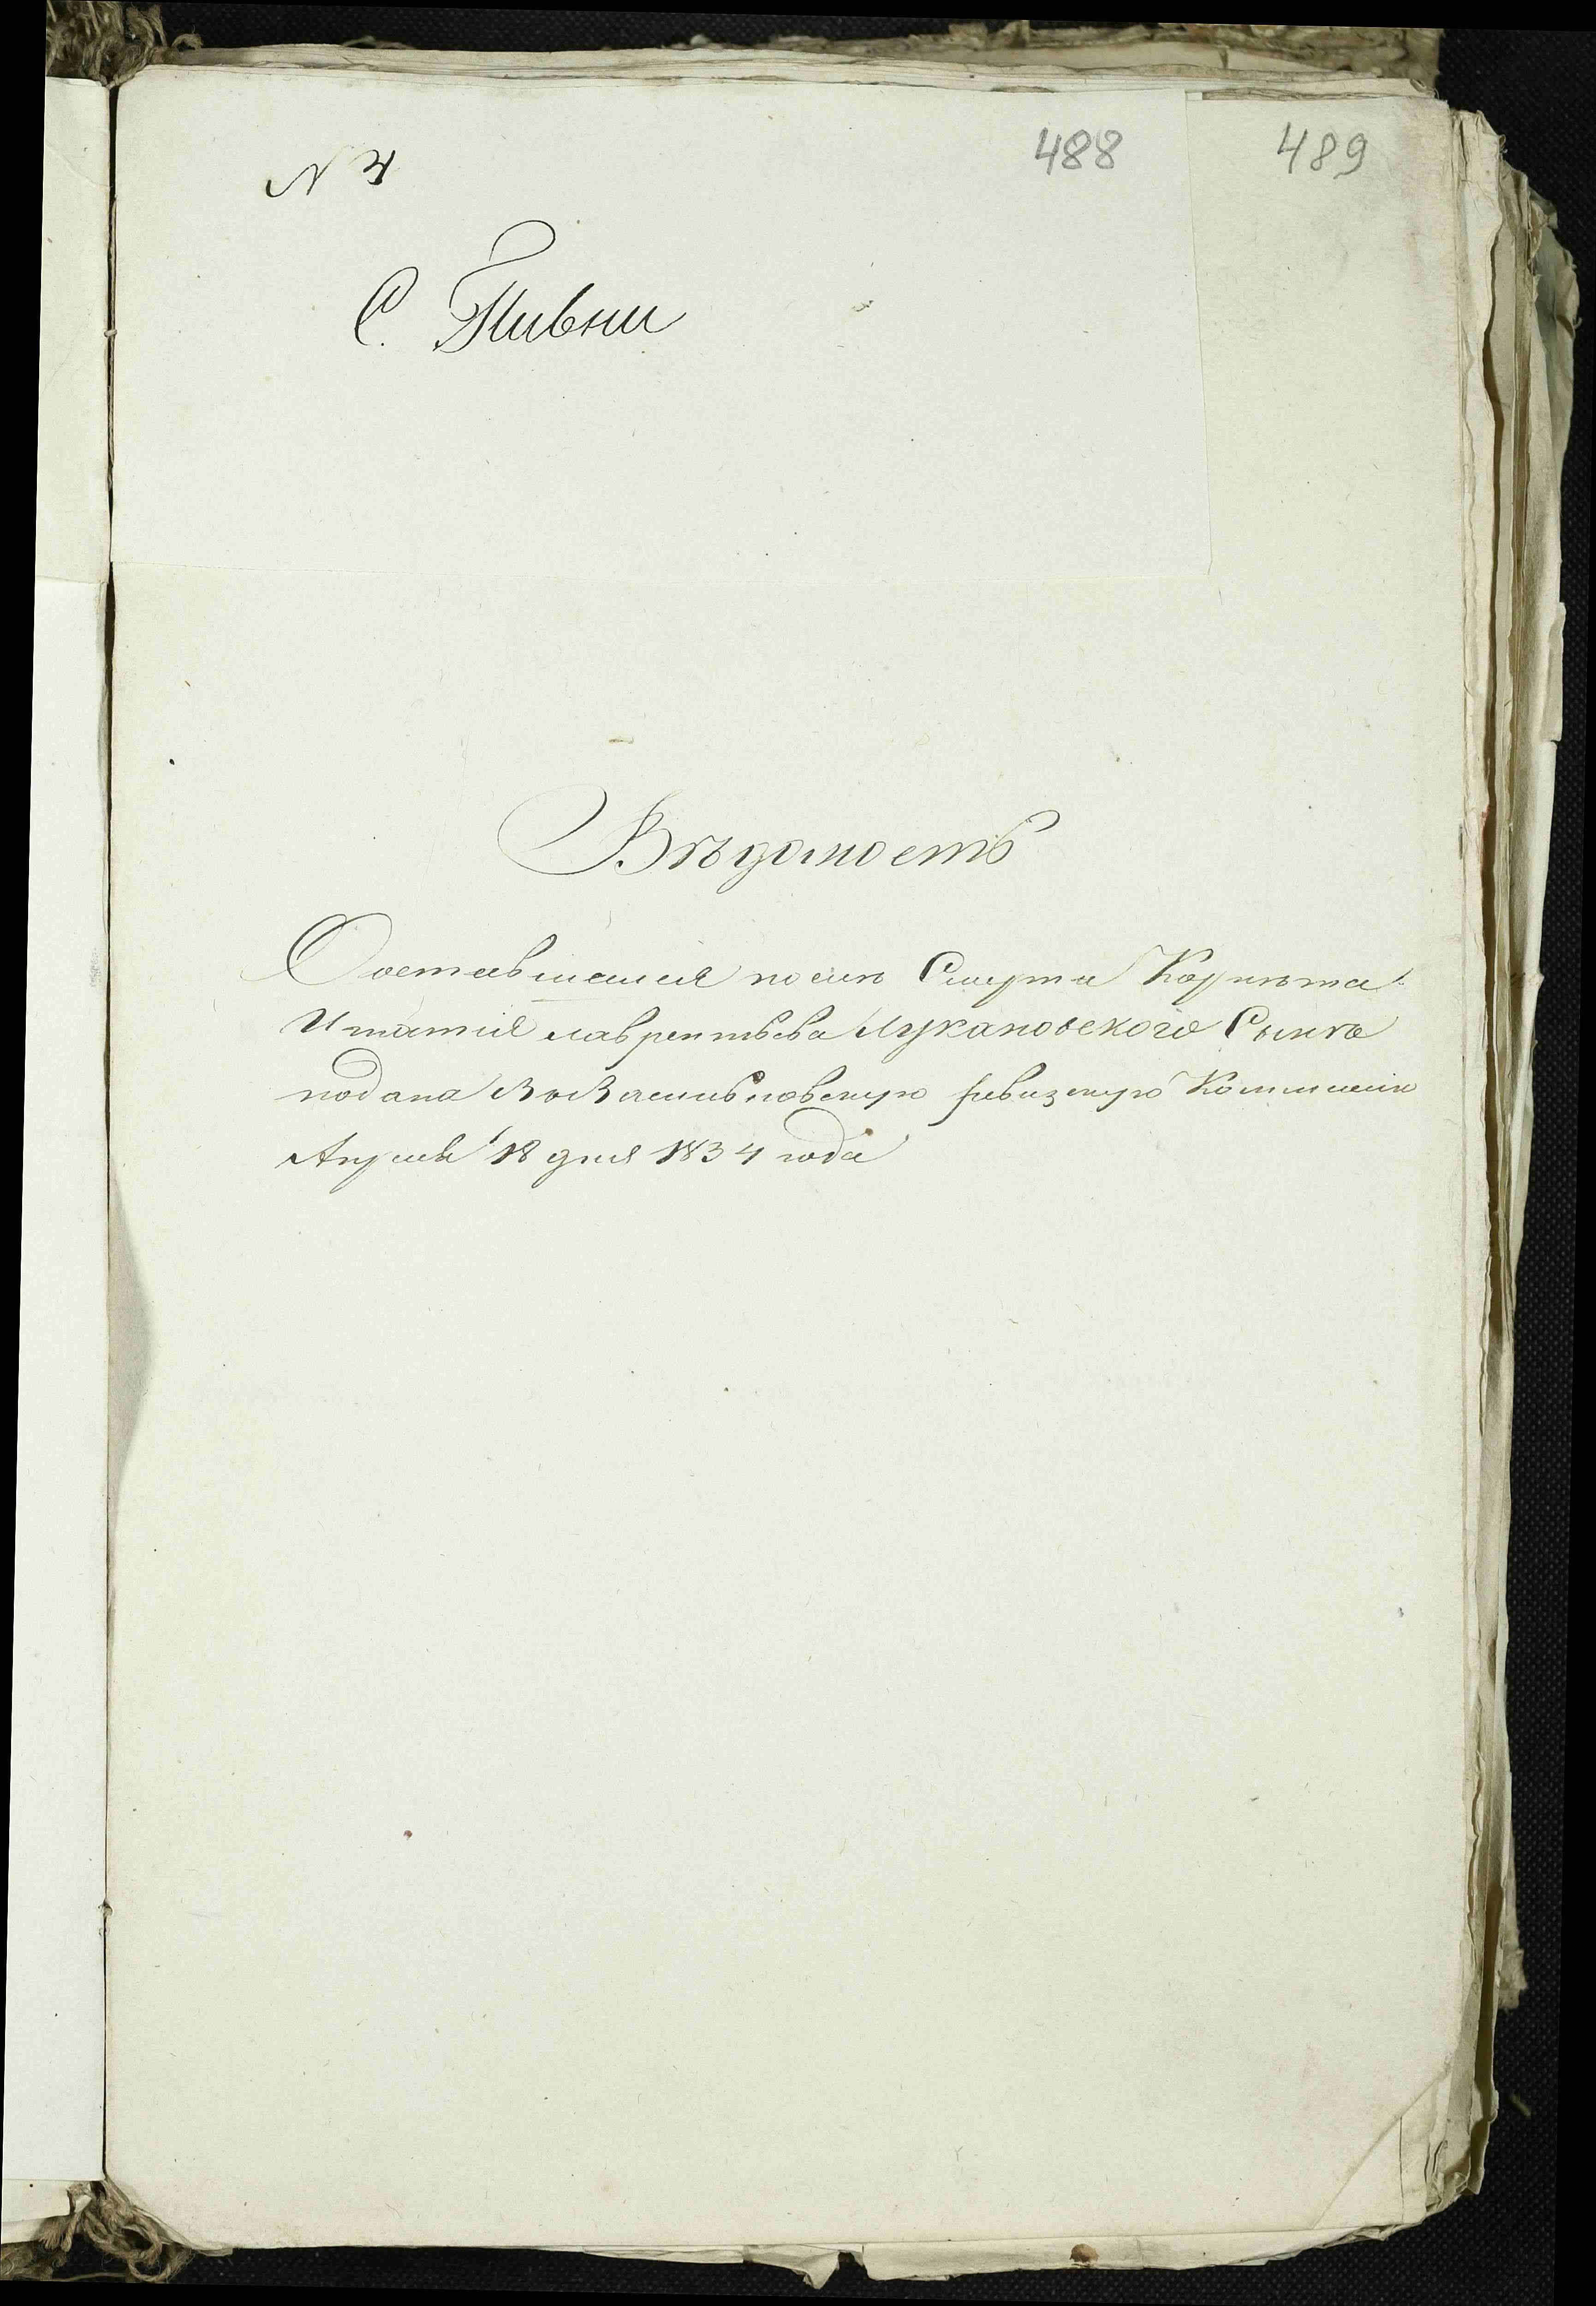 N 4
488
489
С. Пивни
Вѣдомость
Ооставшемся после Смерти Корнета
Игнатия лаврентьева Лукановского Сынѣ
подана ВоВасильковскую ревизскую Коммисию
Апреля 18 дня 1834 года